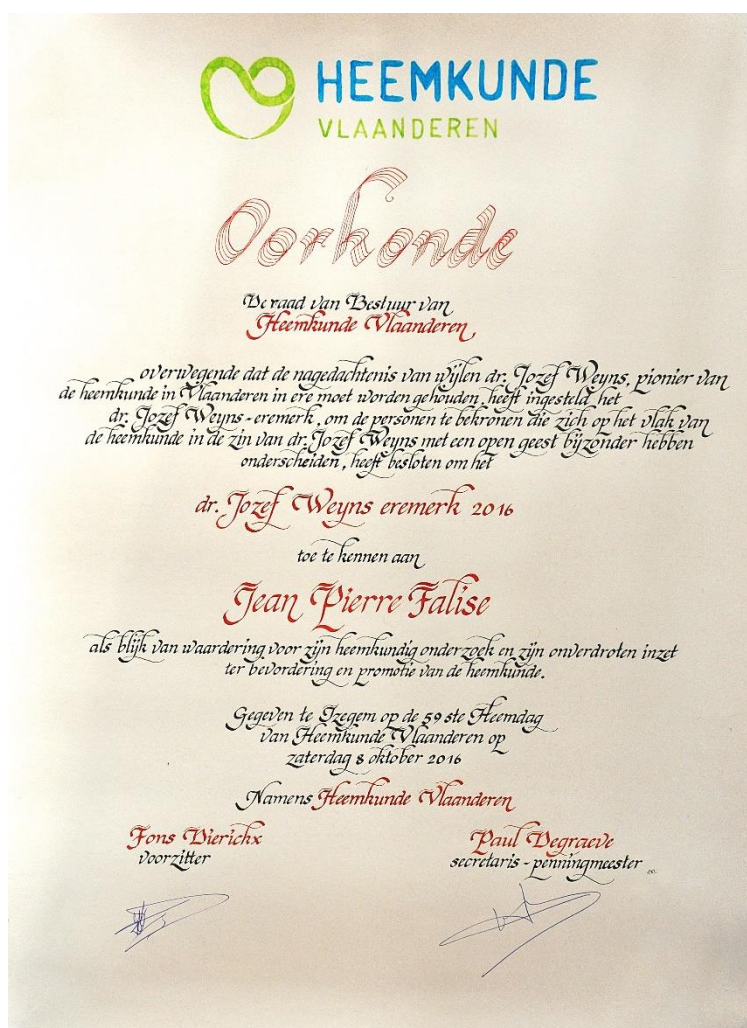 HEEMKUNDE
VLAANDEREN
Oorkonde
De raad van Bestuur van
Heemkunde Vlaanderen,
overwegende dat de nagedachtenis van wijlen dr. Jozef Weyns, pionier van
de heemkunde in Vlaanderen in ere moet worden gehouden, heeft ingesteld het
dr. Jozef Weyns-eremerk, om de personen te bekronen die zich op het vlak van
de heemkunde in de zin van dr. Jozef Weyns met een open geest bijzonder hebben
onderscheiden, heeft besloten om het
dr. Jozef Weyns eremerk 2016
toe te kennen aan
Jean Pierre Falise
als blijk van waardering voor zijn heemkundig onderzoek en zijn onverdroten inzet
ter bevordering en promotie van de heemkunde.
Gegeven te Izegem op de 59 ste Heemdag
van Heemkunde Vlaanderen op
zaterdag 8 oktober 2016
Namens Heemkunde Vlaanderen
Fons Dierickx
voorzitter
Paul Degraeve
secretaris - penningmeester